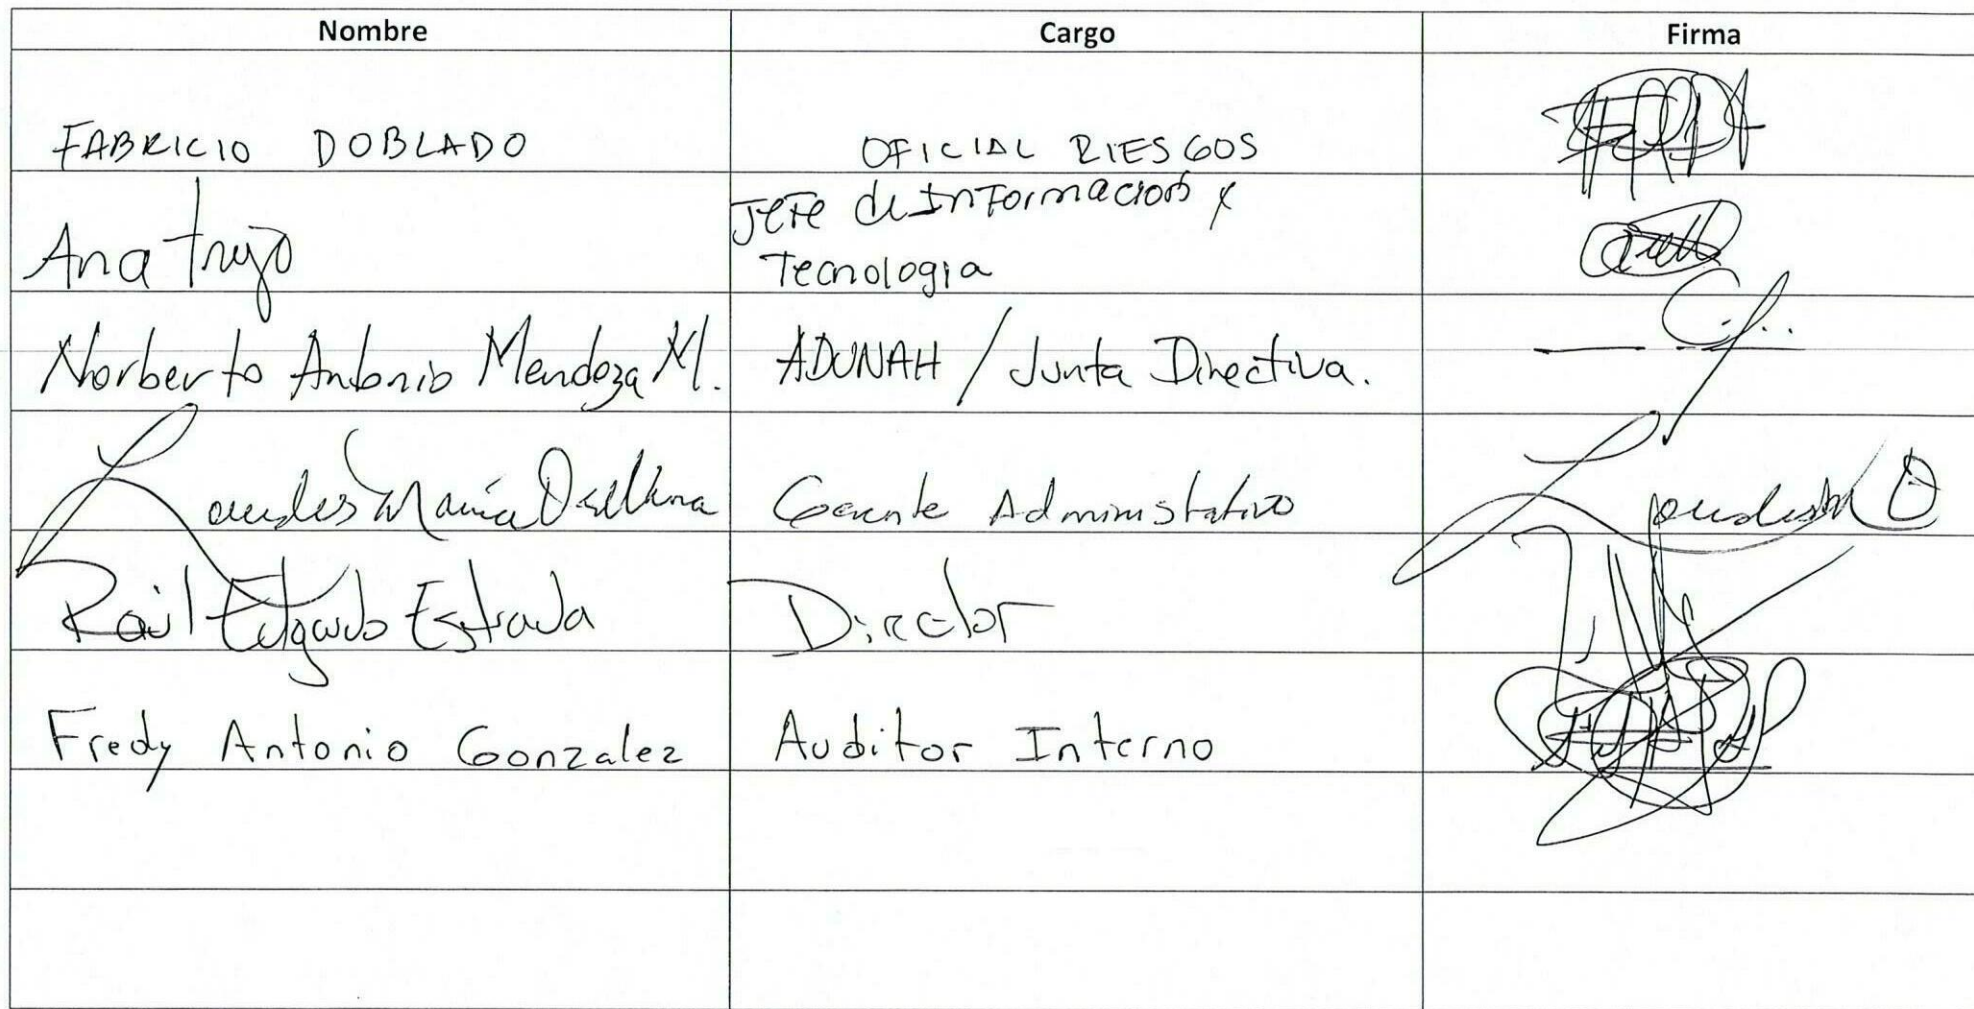 Nombre Cargo Firma
FABRICIO DOBLADO OFICIAL RIESGOS
Jefe de Informacion y
Ana Trejo
Tecnologia
Norberto Antonio Mendoza M. ADUNAH / Junta Directiva.
Lourdes María Orellana Gerente Administrativo Lourdes M O
Raúl Edgardo Estrada Director
Fredy Antonio Gonzalez Auditor Interno